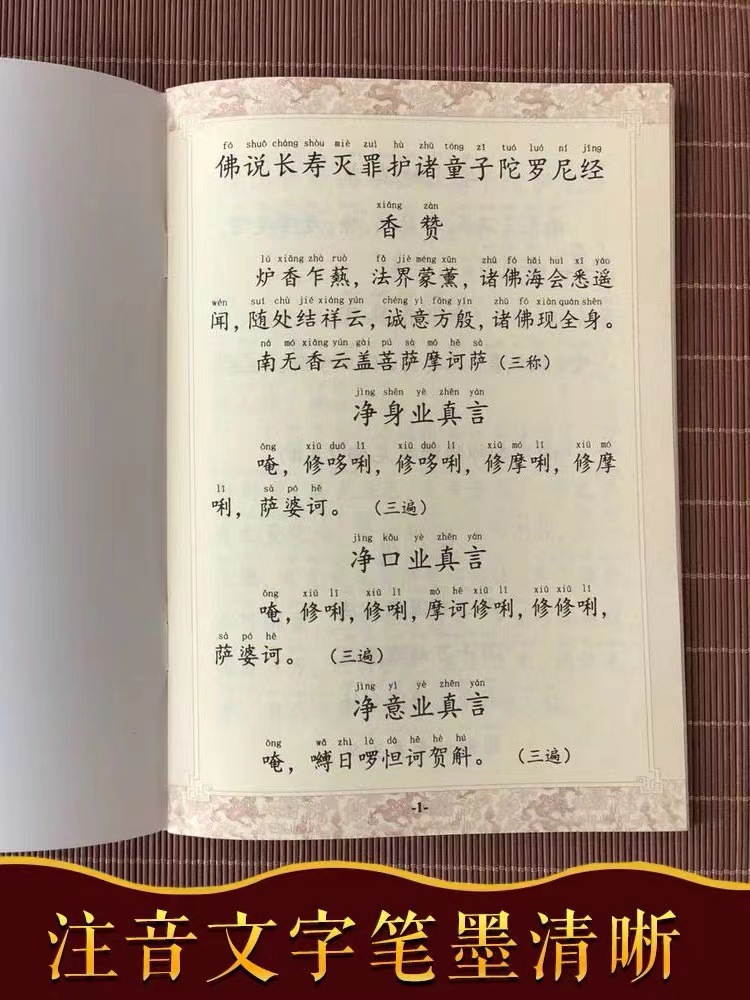 fó shuō cháng shòu miè zuì hù zhū tóng zǐ tuó luó ní jīng
佛说长寿灭罪护诸童子陀罗尼经
xiāng zàn
香赞
lú xiāng zhà ruò fǎ jiè méng xūn zhū fó hǎi huì xī yáo
炉香乍爇，法界蒙薰，诸佛海会悉遥
wén suí chù jié xiáng yún chéng yì fāng yīn zhū fó xiàn quán shēn
闻，随处结祥云，诚意方殷，诸佛现全身。
ná mó xiāng yún gài pú sà mó hē sà
南无香云盖菩萨摩诃萨（三称）
jìng shēn yè zhēn yán
净身业真言
ōng xiū duō lī xiū duō lī xiū mó lī xiū mó
唵，修哆唎，修哆唎，修摩唎，修摩
lī sà pó hē
唎，萨婆诃。（三遍）
jìng kǒu yè zhēn yán
净口业真言
ōng xiū lī xiū lī mó hē xiū lī xiū xiū lī
唵，修唎，修唎，摩诃修唎，修修唎，
sà pó hē
萨婆诃。（三遍）
jìng yì yè zhēn yán
净意业真言
ōng wǎ zhī là dá hē hè hú
唵，嚩日啰怛诃贺斛。（三遍）
-1-
注音文字笔墨清晰